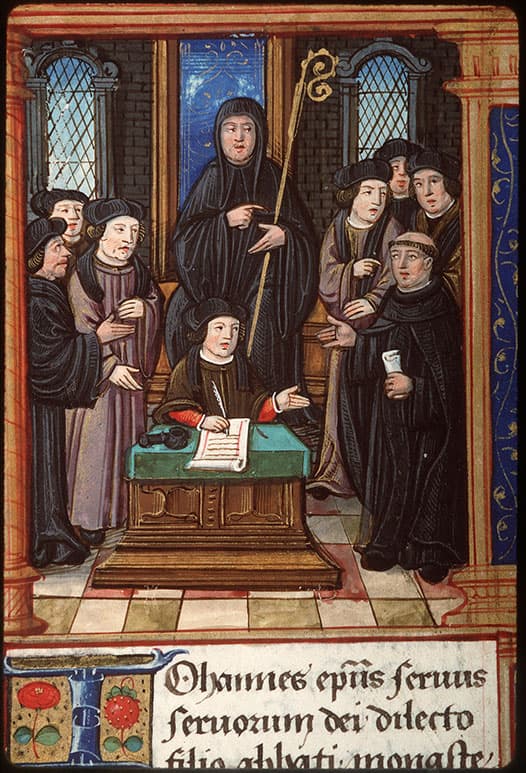 IOhannes ep̃us seruus
seruorum dei dilecto
filio abbati monaste